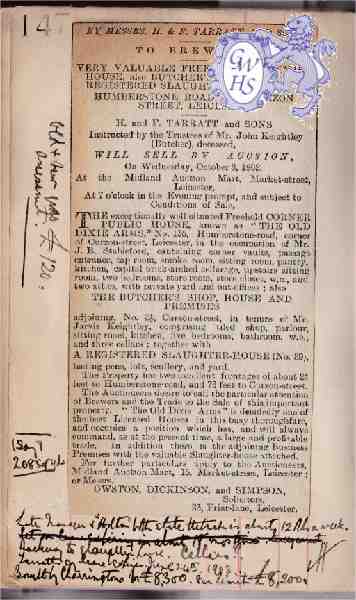 147
BY MESSRS. H. & F. TARRATT
TO BREW
VERY VALUABLE FREE
HOUSE, also BUTCHER'S
REGISTERED SLAUGHT
HUMBERSTONE ROAD
STREET, LEICE
H. and F. TARRATT and SONS
Instructed by the Trustees of Mr. John Keightley
(Butcher), deceased,
WILL SELL BY AUCTION,
On Wednesday, October 8, 1902,
At the Midland Auction Mart, Market-street,
Leicester,
At 7 o'clock in the Evening prompt, and subject to
Conditions of Sale,
THE exceptionally well situated Freehold CORNER
PUBLIC HOUSE, known as "THE OLD
DIXIE ARMS," No. Humberstone-road, corner
of Curzon-street, Leicester, in the occupation of Mr.
J. B. Stableford, containing corner vaults, passage
entrance, tap room, smoke room, sitting room, pantry,
kitchen, capital brick-arched cellarage, upstairs sitting
room, two bedrooms, store room, store closet, w.c., and
two attics, with private yard and out-offices; also
THE BUTCHER'S SHOP, HOUSE AND
PREMISES
adjoining, No. Curzon-street, in tenure of Mr.
Jarvis Keightley, comprising tiled shop, parlour,
sitting room, kitchen, five bedrooms, bathroom, w.c.,
and three cellars; together with
A REGISTERED SLAUGHTER-HOUSE (No. 89),
lairing pens, loft, scullery, and yard.
The Property has two excellent frontages of about
feet to Humberstone-road, and 72 feet to Curzon-street.
The Auctioneers desire to call the particular attention
of Brewers and the Trade to the Sale of this important
property. "The Old Dixie Arms" is decidedly one of
the best Licensed Houses in this busy thoroughfare,
and occupies a position which has, and will always
command, as at the present time, a large and profitable
trade. In addition there is the adjoining Business
Premises with the valuable Slaughter-house attached.
For further particulars apply to the Auctioneers,
Midland Auction Mart, 15, Market-street, Leicester;
or Messrs.
OWSTON, DICKINSON, and SIMPSON,
Solicitors,
23, Friar-lane, Leicester.
GWHS
£120.
Say
208 Sq yds
state the trade is about 12 Brls a week.
£8300. our limit £8,200